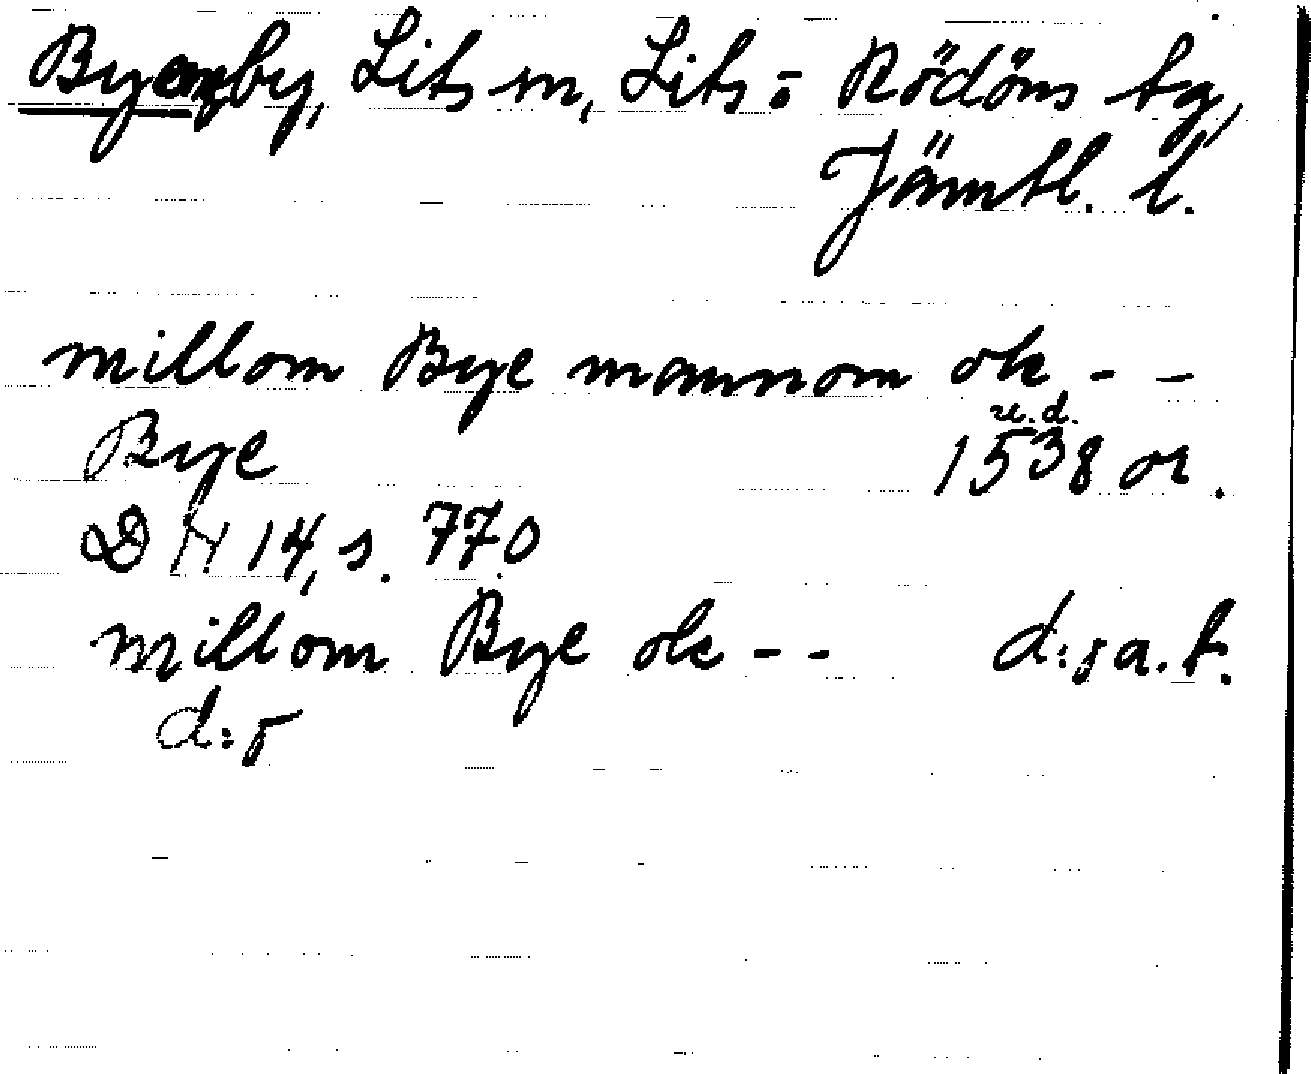 Byen, by, Lits sn, Lits o Rödöns tg,
Jämtl. l.
millom Bye mannom ok - -
Bye u.d. 1538 or.
DN 14, s. 770
millom Bye ok - - d:s a. t.
d:o